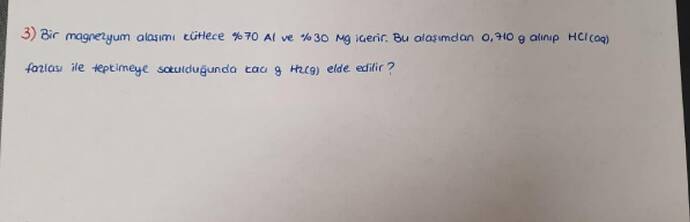 3) Bir magnezyum alaşımı kütlece %70 Al ve %30 Mg içerir. Bu alaşımdan 0,710 g alınıp HCl(aq)
fazlası ile tepkimeye sokulduğunda kaç g H2(g) elde edilir?